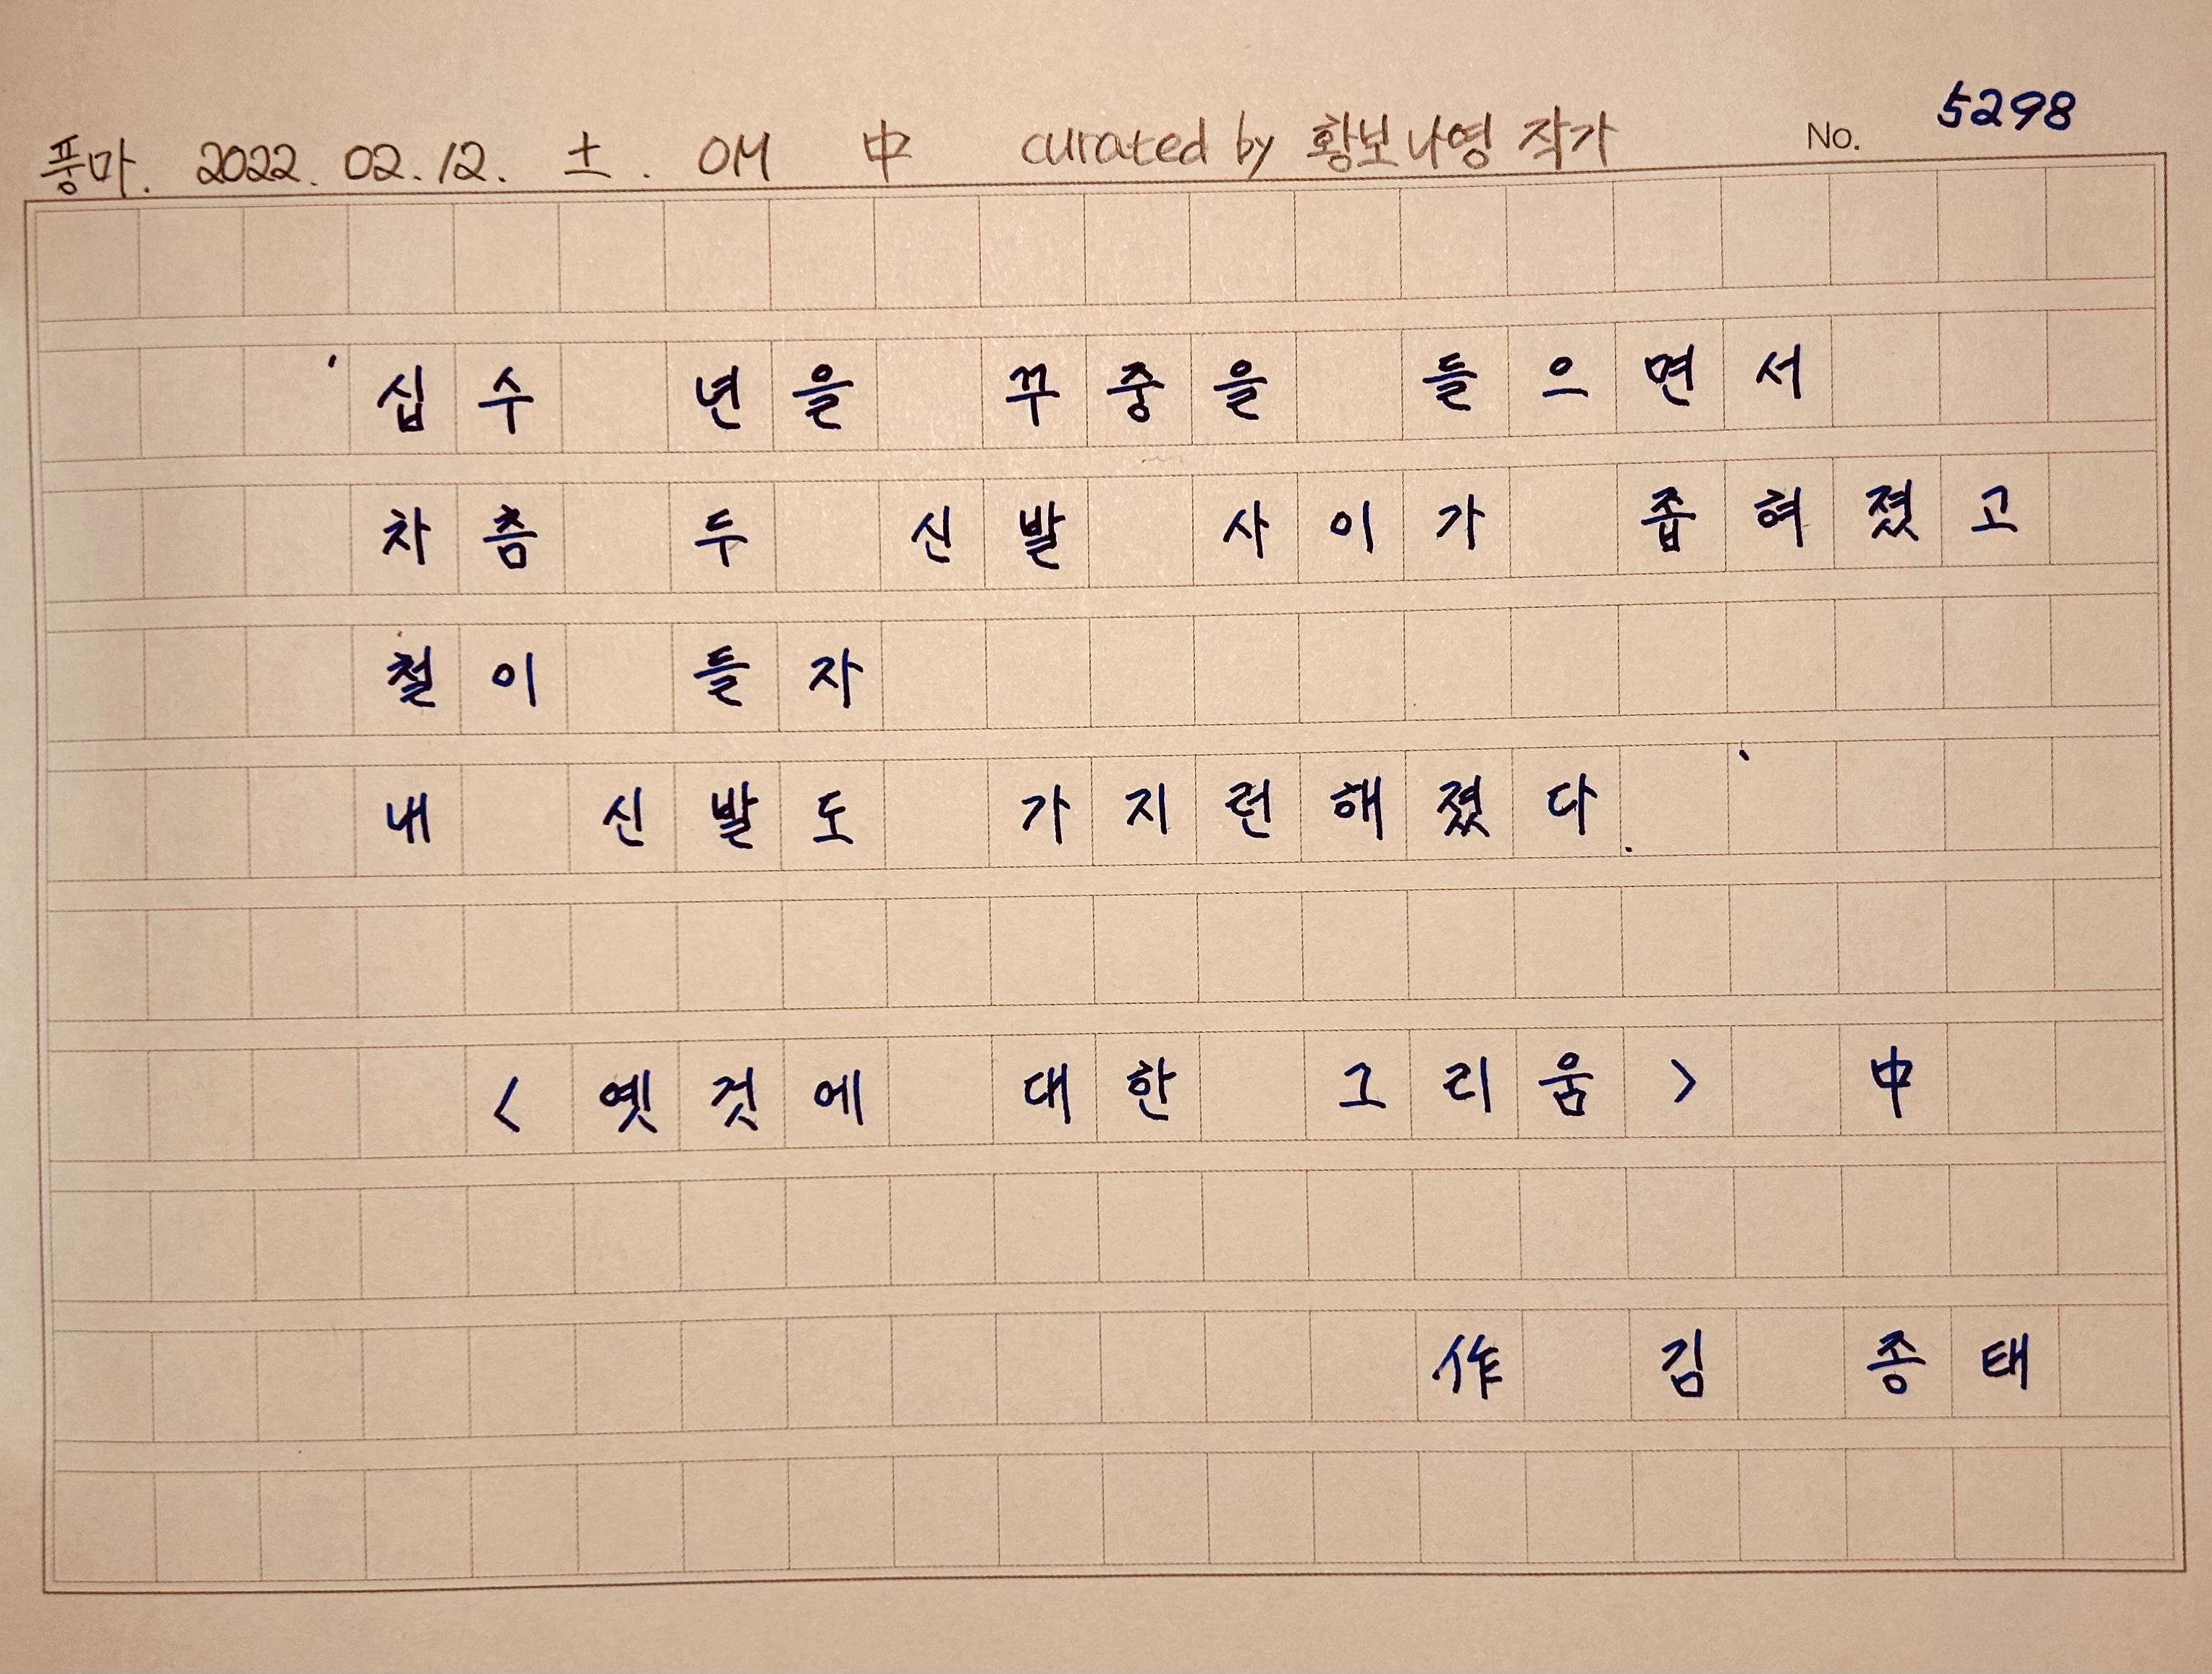 풍마. 2022. 02. 12. 土. OM 中 curated by 황보나영 작가 No. 5298
'십수 년을 꾸중을 들으면서
차츰 두 신발 사이가 좁혀졌고
철이 들자
내 신발도 가지런해졌다.'
<옛것에 대한 그리움> 中
作 김 종태